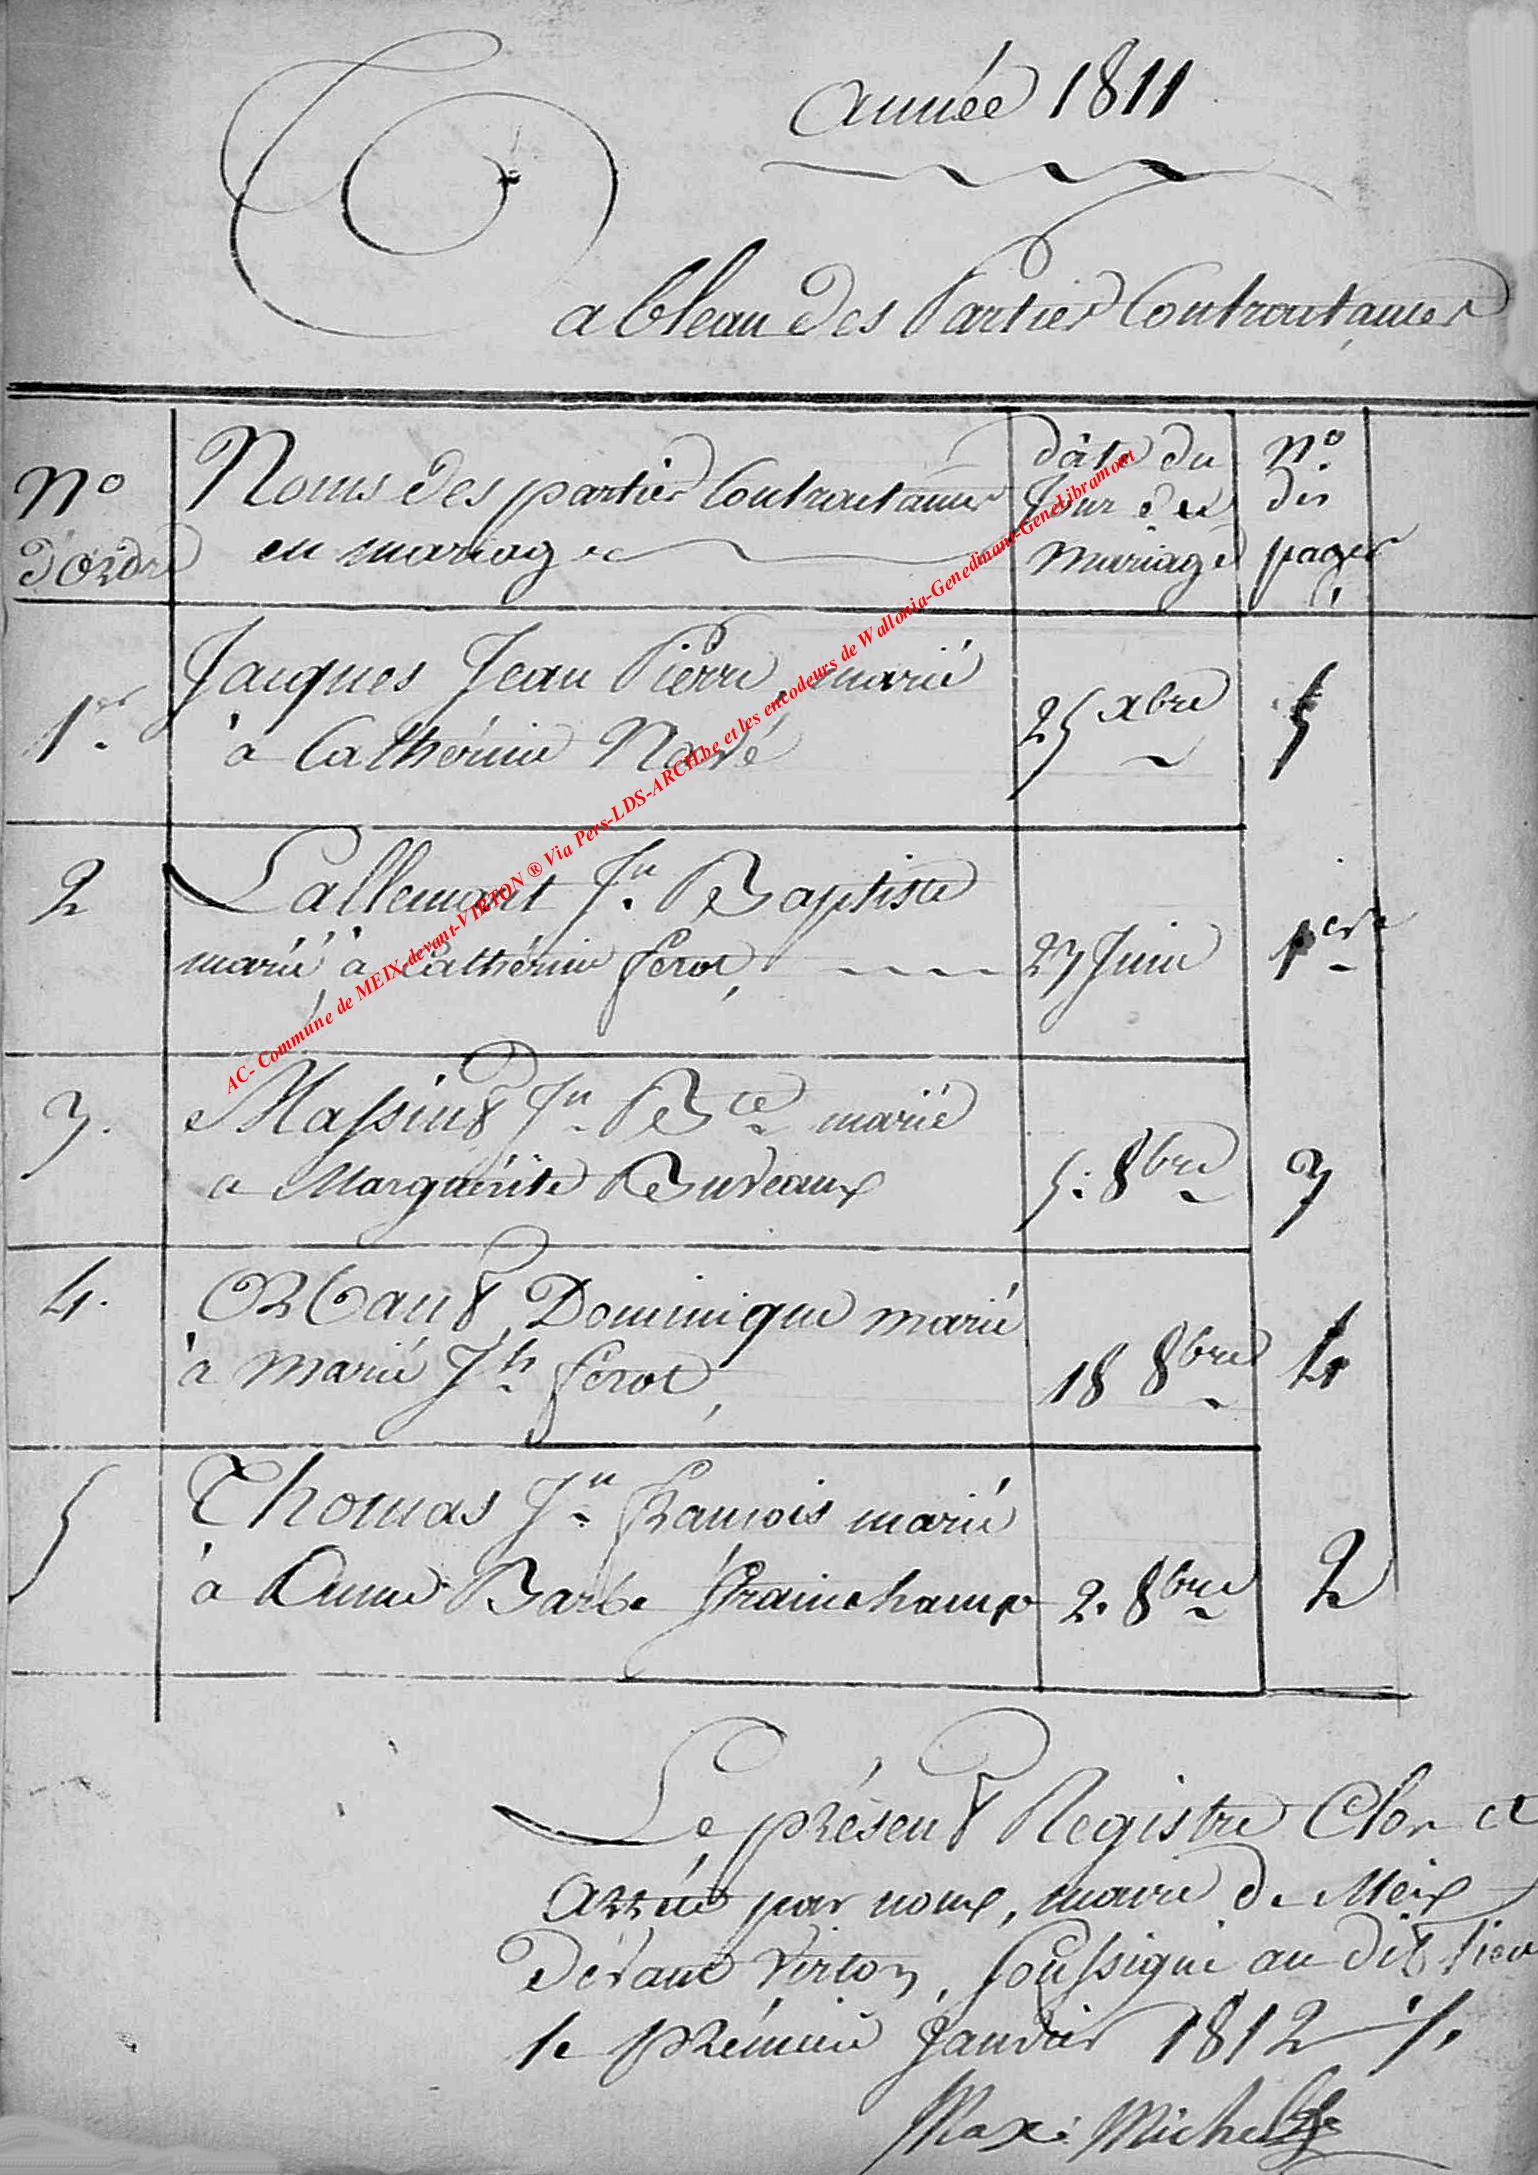 Année 1811
Tableau Des Parties Contractantes
No d'ordre
Noms Des parties Contractantes
en mariage
dâte du
Jour du
mariage
No.
des
pages
1er. Jacques Jean Pierre, marié
à Cathérine Navé 25 xbre 5
2 Lallemant Jn. Baptiste
marié à Cathérine ferot, 27 Juin 1ere
3. Massint Jn Bte marié
a Marguérite Bureaux 5. 8bre 3
4. Orbant Dominique marié
à marie Jh ferot, 18 8bre 4
5 Thomas Jn françois marié
à Anne Barbe frainchamp 2. 8bre 2
Le présent Registre Clos et
arrêté par nous, maire de Meix
Devant Virton, soussigné au dit lieu
le prémier Janvier 1812 ./.
Max: Michel
AC- Commune de MEIX-devant-VIRTON ® Via Pers-LDS-ARCH.be et les encodeurs de Wallonia-Genedinant-GeneLibramont